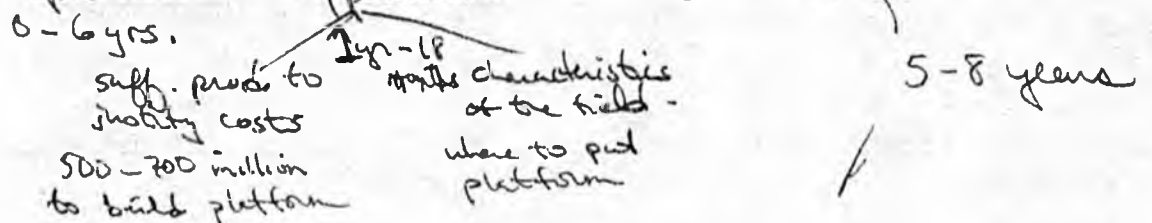 0-6 yrs.
1 yr-18
months
suff. prod. to
justify costs
500-700 million
to build platform
characteristics
of the field -
where to put
platform
5-8 years